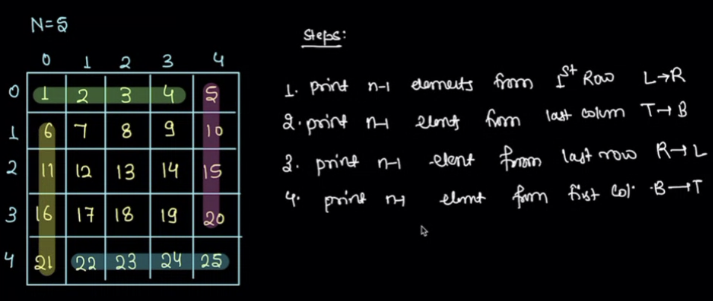 N=5
Steps:
0 1 2 3 4
0 1 2 3 4 5
1 6 7 8 9 10
2 11 12 13 14 15
3 16 17 18 19 20
4 21 22 23 24 25
1. print n-1 elements from 1st Row L→R
2. print n-1 elemts from last column T→B
3. print n-1 elemt from last row R→L
4. print n-1 elemt from first col. B→T